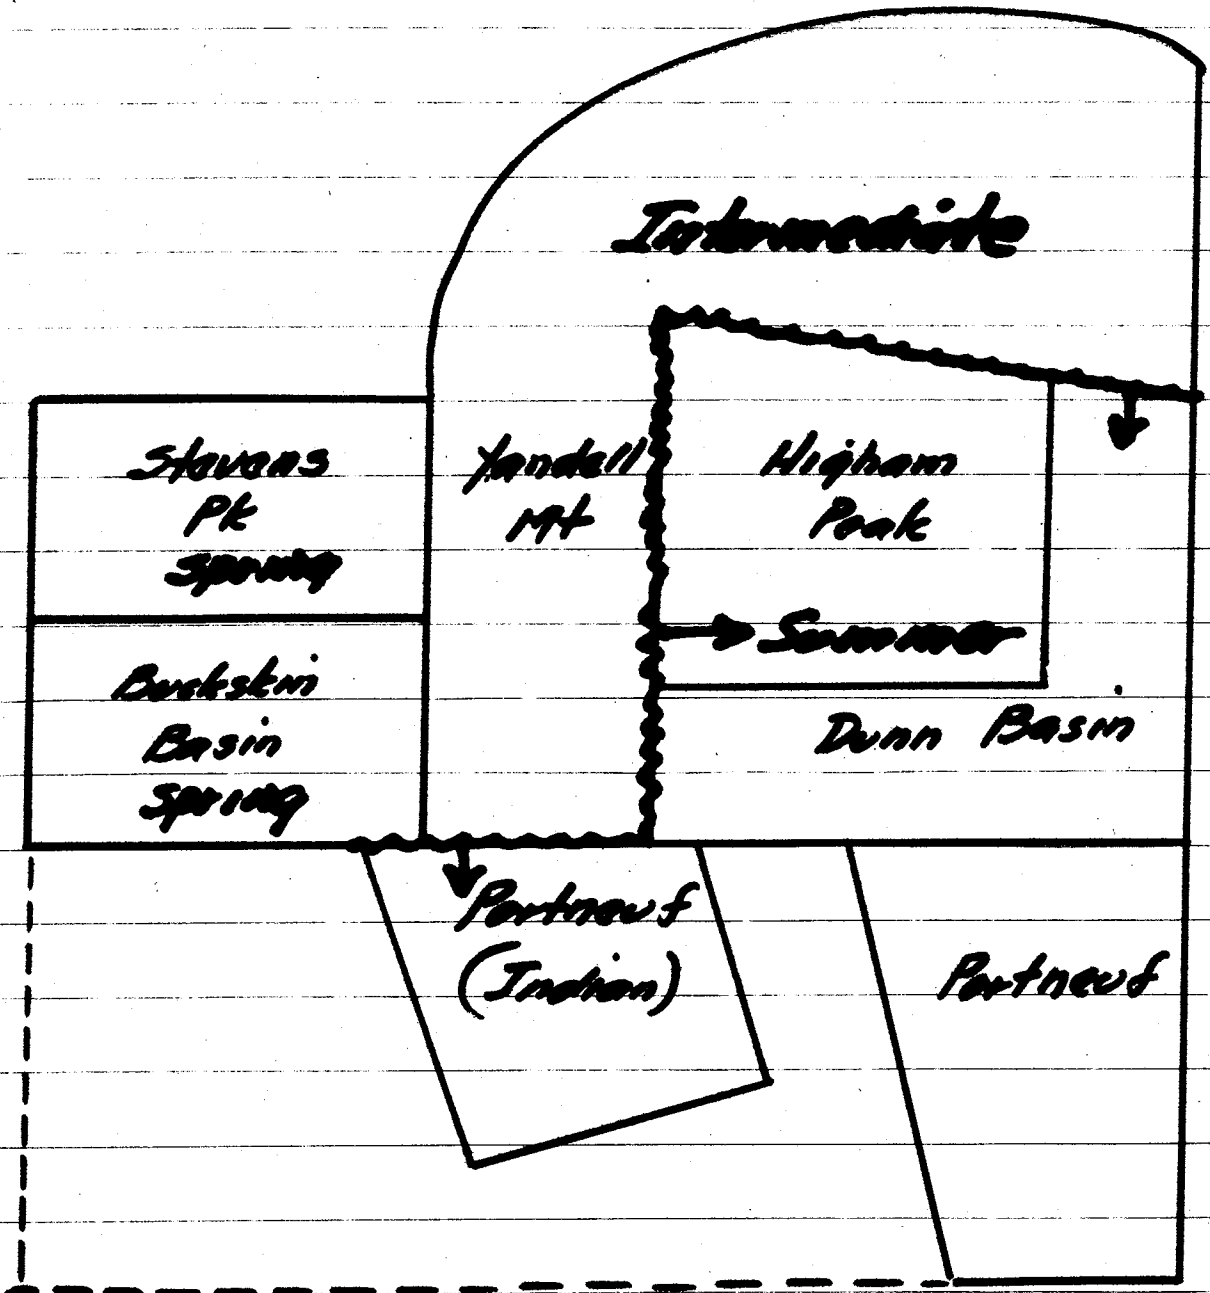 Intermediate
Stevens
Pk
Spring
Yandell
Mt
Higham
Peak
Summer
Buckskin
Basin
Spring
Dunn Basin
Portneuf
(Indian)
Portneuf